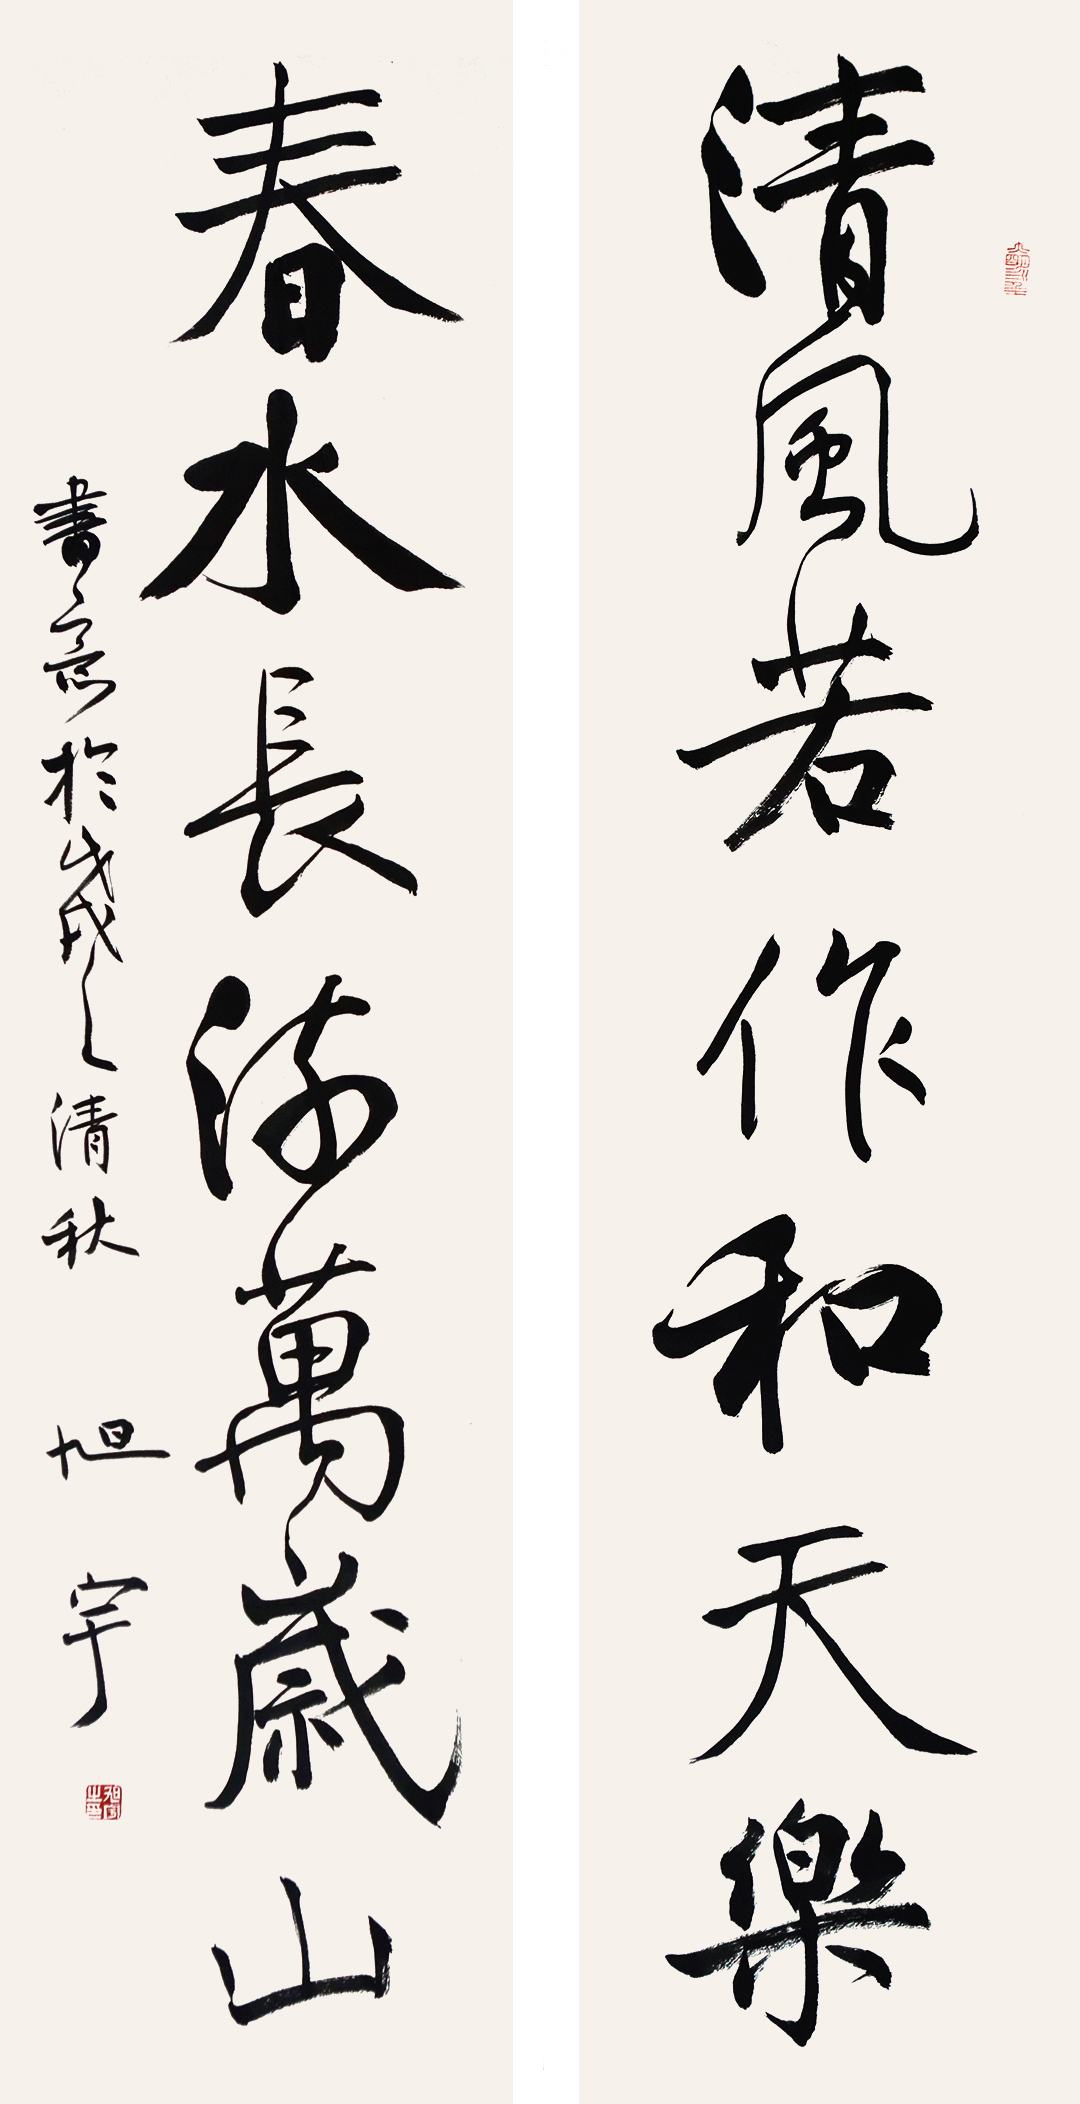 清風若作和天樂
春水長流萬歲山
書意於戊戌之清秋
旭宇
旭宇之印